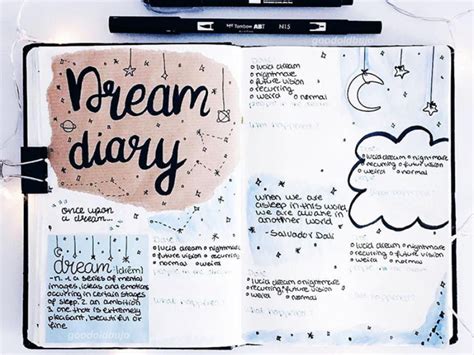 Tombow ABT N15
goodoldbujo
Dream
diary
once upon
a dream...
dream [driem]
-n. 1. a series of mental
images, ideas and emotions
occuring in certain stages
of sleep. 2. an ambition
3. one that is extremely
pleasant, beautiful or
fine
goodoldbujo
o lucid dream o nightmare
o future vision o
recurring o
normal o weird o
o lucid dream
o nightmare
o future vision
o recurring
o weird o normal
what happened?
when we are
asleep in this world
we are awake in
another world.
-Salvador Dalí
Date:
o lucid dream o nightmare
recurring o future vision o
weird o normal
what happened?
o lucid dream o nightmare
recurring o future vision o
o weird o normal
o lucid dream o nightmare
o future vision o recurring
o normal o weird
what happened?